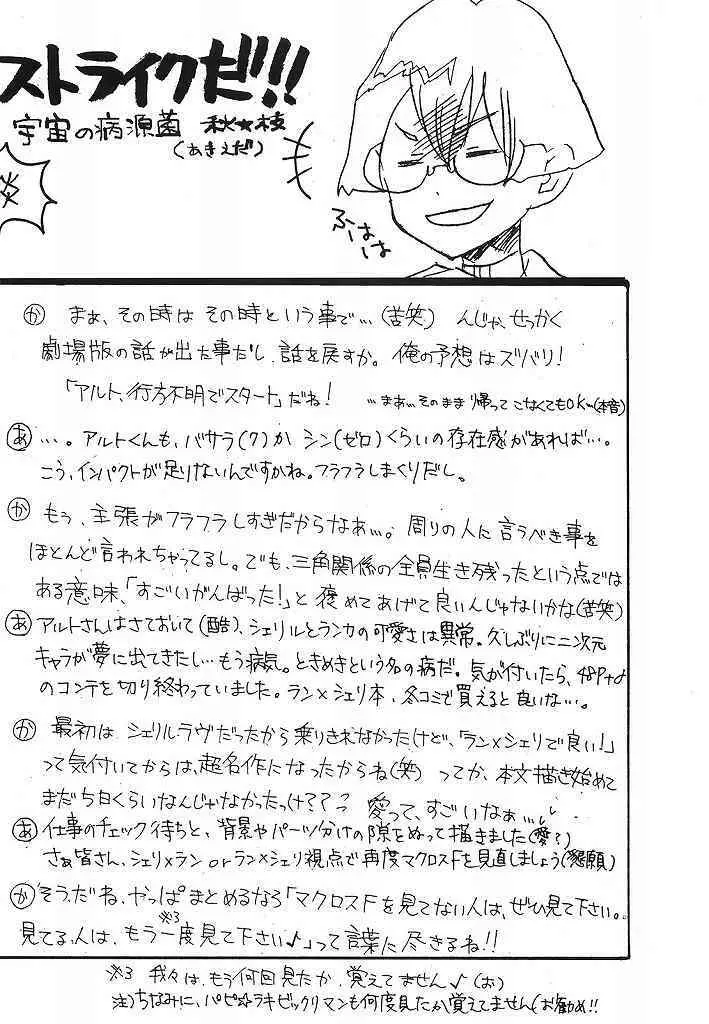 ストライクだ!!!
宇宙の病源菌 秋★枝
(あきえだ)
炎
ふははは
か まぁ、その時は その時という事で…(苦笑) んじゃ、せっかく
劇場版の話が出た事だし、話を戻すか。俺の予想はズバリ!
「アルト、行方不明でスタート」だね! …まぁ…そのまま帰ってこなくてもOK…(本音)
あ …。アルトくんも、バサラ(7)か シン(ゼロ)くらいの存在感があれば…。
こう、インパクトが足りないんですかね。フラフラしまくりだし。
か もう、主張がフラフラしすぎだからなぁ…。周りの人に言うべき事を
ほとんど言われちゃってるし。でも、三角関係の全員生き残ったという点では
ある意味、「すごいがんばった!」と褒めてあげて良いんじゃないかな(苦笑)
あ アルトさんはさておいて(酷)、シェリルとランカの可愛さは異常。久しぶりに二次元
キャラが夢に出てきたし…もう病気。ときめきという名の病だ。気が付いたら、48P+α
のコンテを切り終わっていました。ラン×シェリ本、冬コミで買えると良いな…。
か 最初は シェリルラヴだったから乗りきれなかったけど、「ラン×シェリで良い!」
って気付いてからは、超名作になったからね(笑) ってか、本文描き始めて
まだち日くらいなんじゃなかったっけ??? 愛って、すごいなぁ…
あ 仕事のチェック待ちと、背景やパーツ分けの隙をぬって描きました(愛?)
さぁ皆さん、シェリ×ラン or ラン×シェリ視点で再度マクロスFを見直しましょう(懇願)
か そうだね、やっぱまとめるなら「マクロスFを見てない人は、ぜひ見て下さい。
※3
見てる人は、もう一度見て下さい♪」って言葉に尽きるね!!
※3 我々は、もう何回見たか、覚えてません♪(お)
注)ちなみに、パピ☆ラキビックリマンも何度見たか覚えてません(お勧め!!